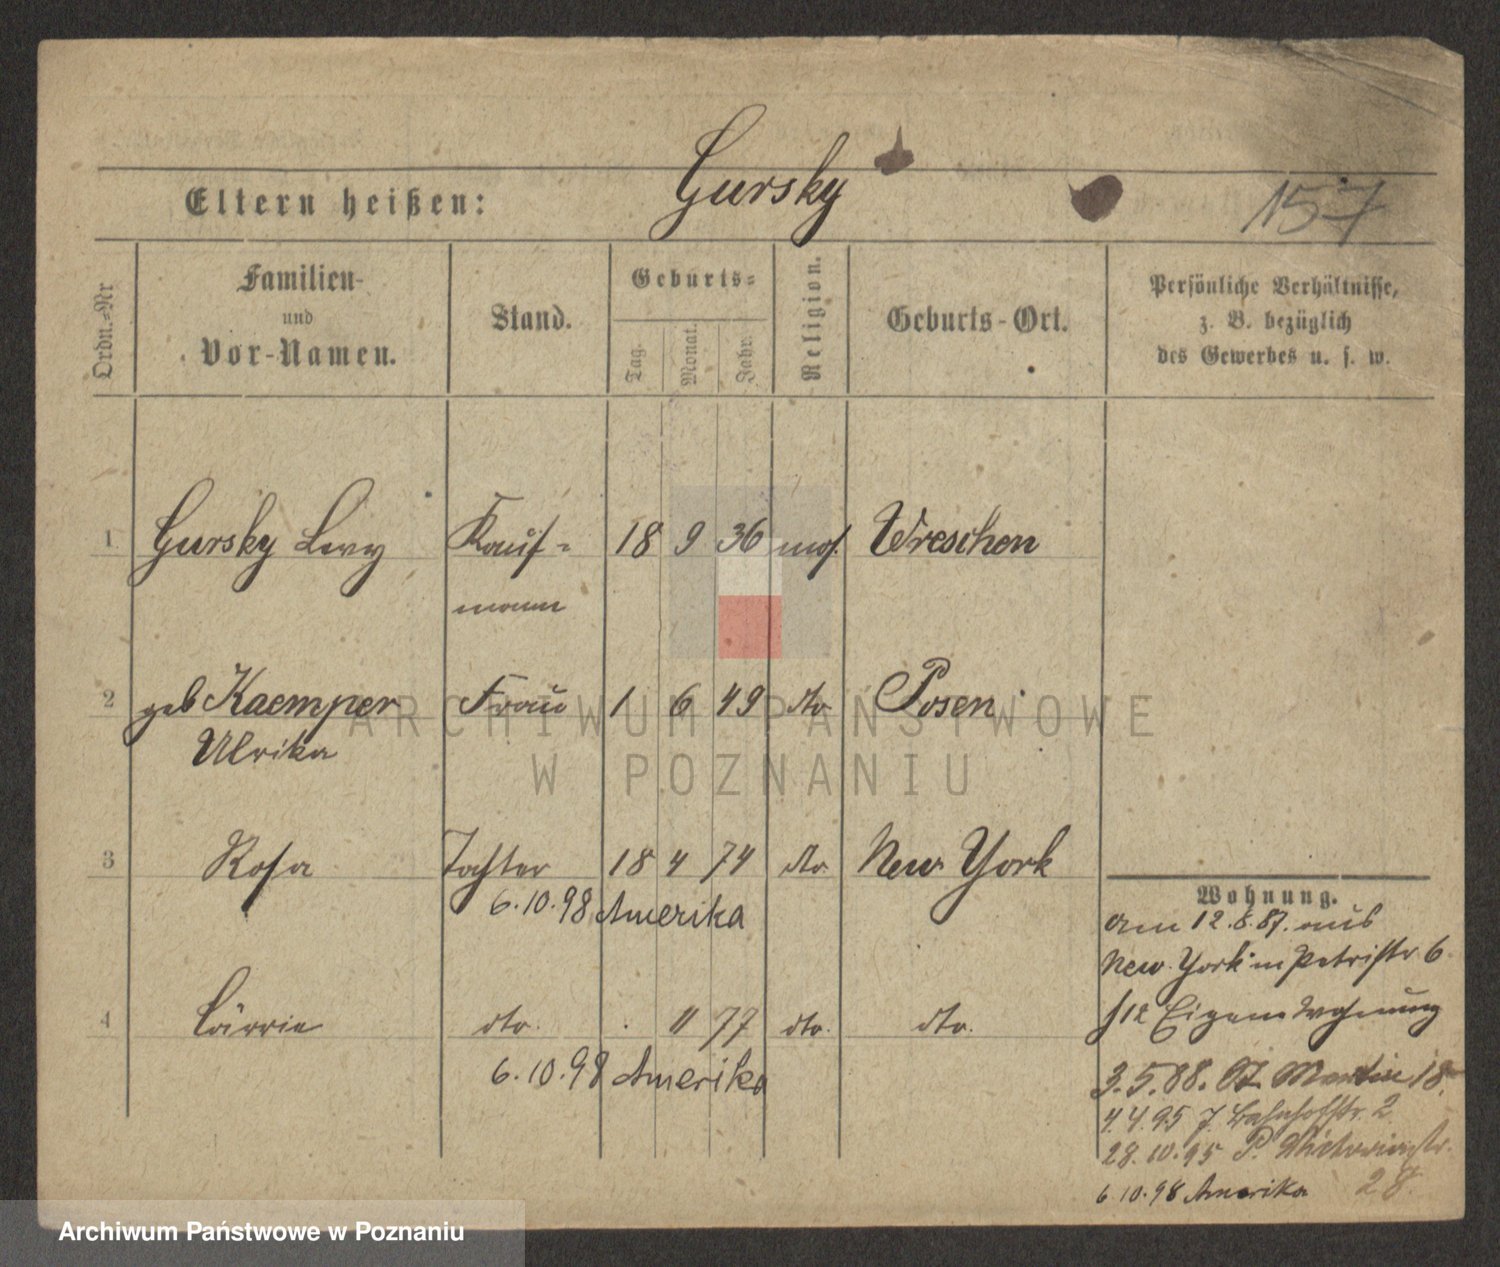 Gursky
Eltern heißen:
157
Ordn.=Nr
Familien-
und
Vor-Namen.
Stand.
Geburts=
Tag.
Monat.
Jahr.
Religion.
Geburts-Ort.
Persönliche Verhältnisse,
z. B. bezüglich
des Gewerbes u. s. w.
1 Gursky Levy Kauf= 18 9 36 mos. Wreschen
mann
2 geb Kaemper Frau 1 6 49 dto Posen
Ulrika
3 Rosa Tochter 18 4 74 dto. New York
6.10.98 Amerika
4 Carrie dto. 11 77 dto. dto.
6.10.98 Amerika
Wohnung.
am 12.8.87. aus
New York in Petristr 6
Eigene Wohnung
3.5.88. St Martin 18
4.4.95 Bahnhofstr. 2
28.10.95 P. Victoriastr.
28.
6.10.98 Amerika
ARCHIWUM PAŃSTWOWE
W POZNANIU
Archiwum Państwowe w Poznaniu